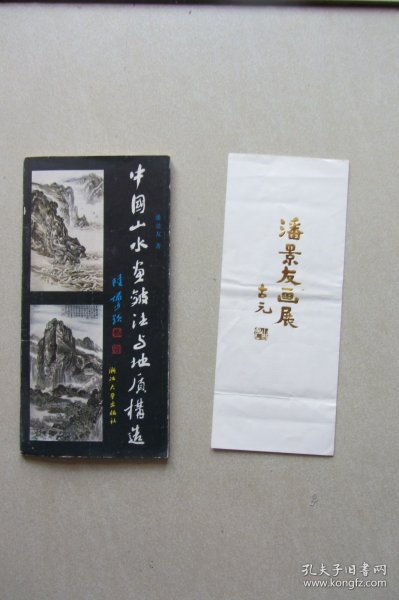 中国山水画皴法与地质構造
潘景友 著
陆俨少题
浙江大学出版社
潘景友画展
古元
孔夫子旧书网
www.kongfz.com